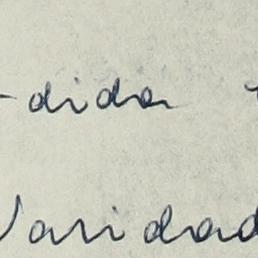 -dida
Varidad